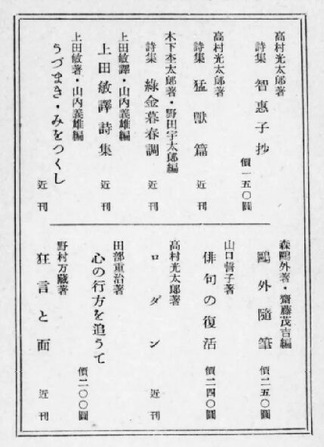 高村光太郎著
詩集 智惠子抄 價一五〇圓
高村光太郎著
詩集 猛獸篇 近刊
木下杢太郎著・野田宇太郎編
詩集 綠金暮春調 近刊
上田敏譯・山内義雄編
上田敏譯詩集 近刊
上田敏著・山内義雄編
うづまき・みをつくし 近刊
森鷗外著・齋藤茂吉編
鷗外隨筆 價二五〇圓
山口誓子著
俳句の復活 價二四〇圓
高村光太郎著
ロダン 近刊
田部重治著
心の行方を追うて 價二〇〇圓
野村万藏著
狂言と面 近刊